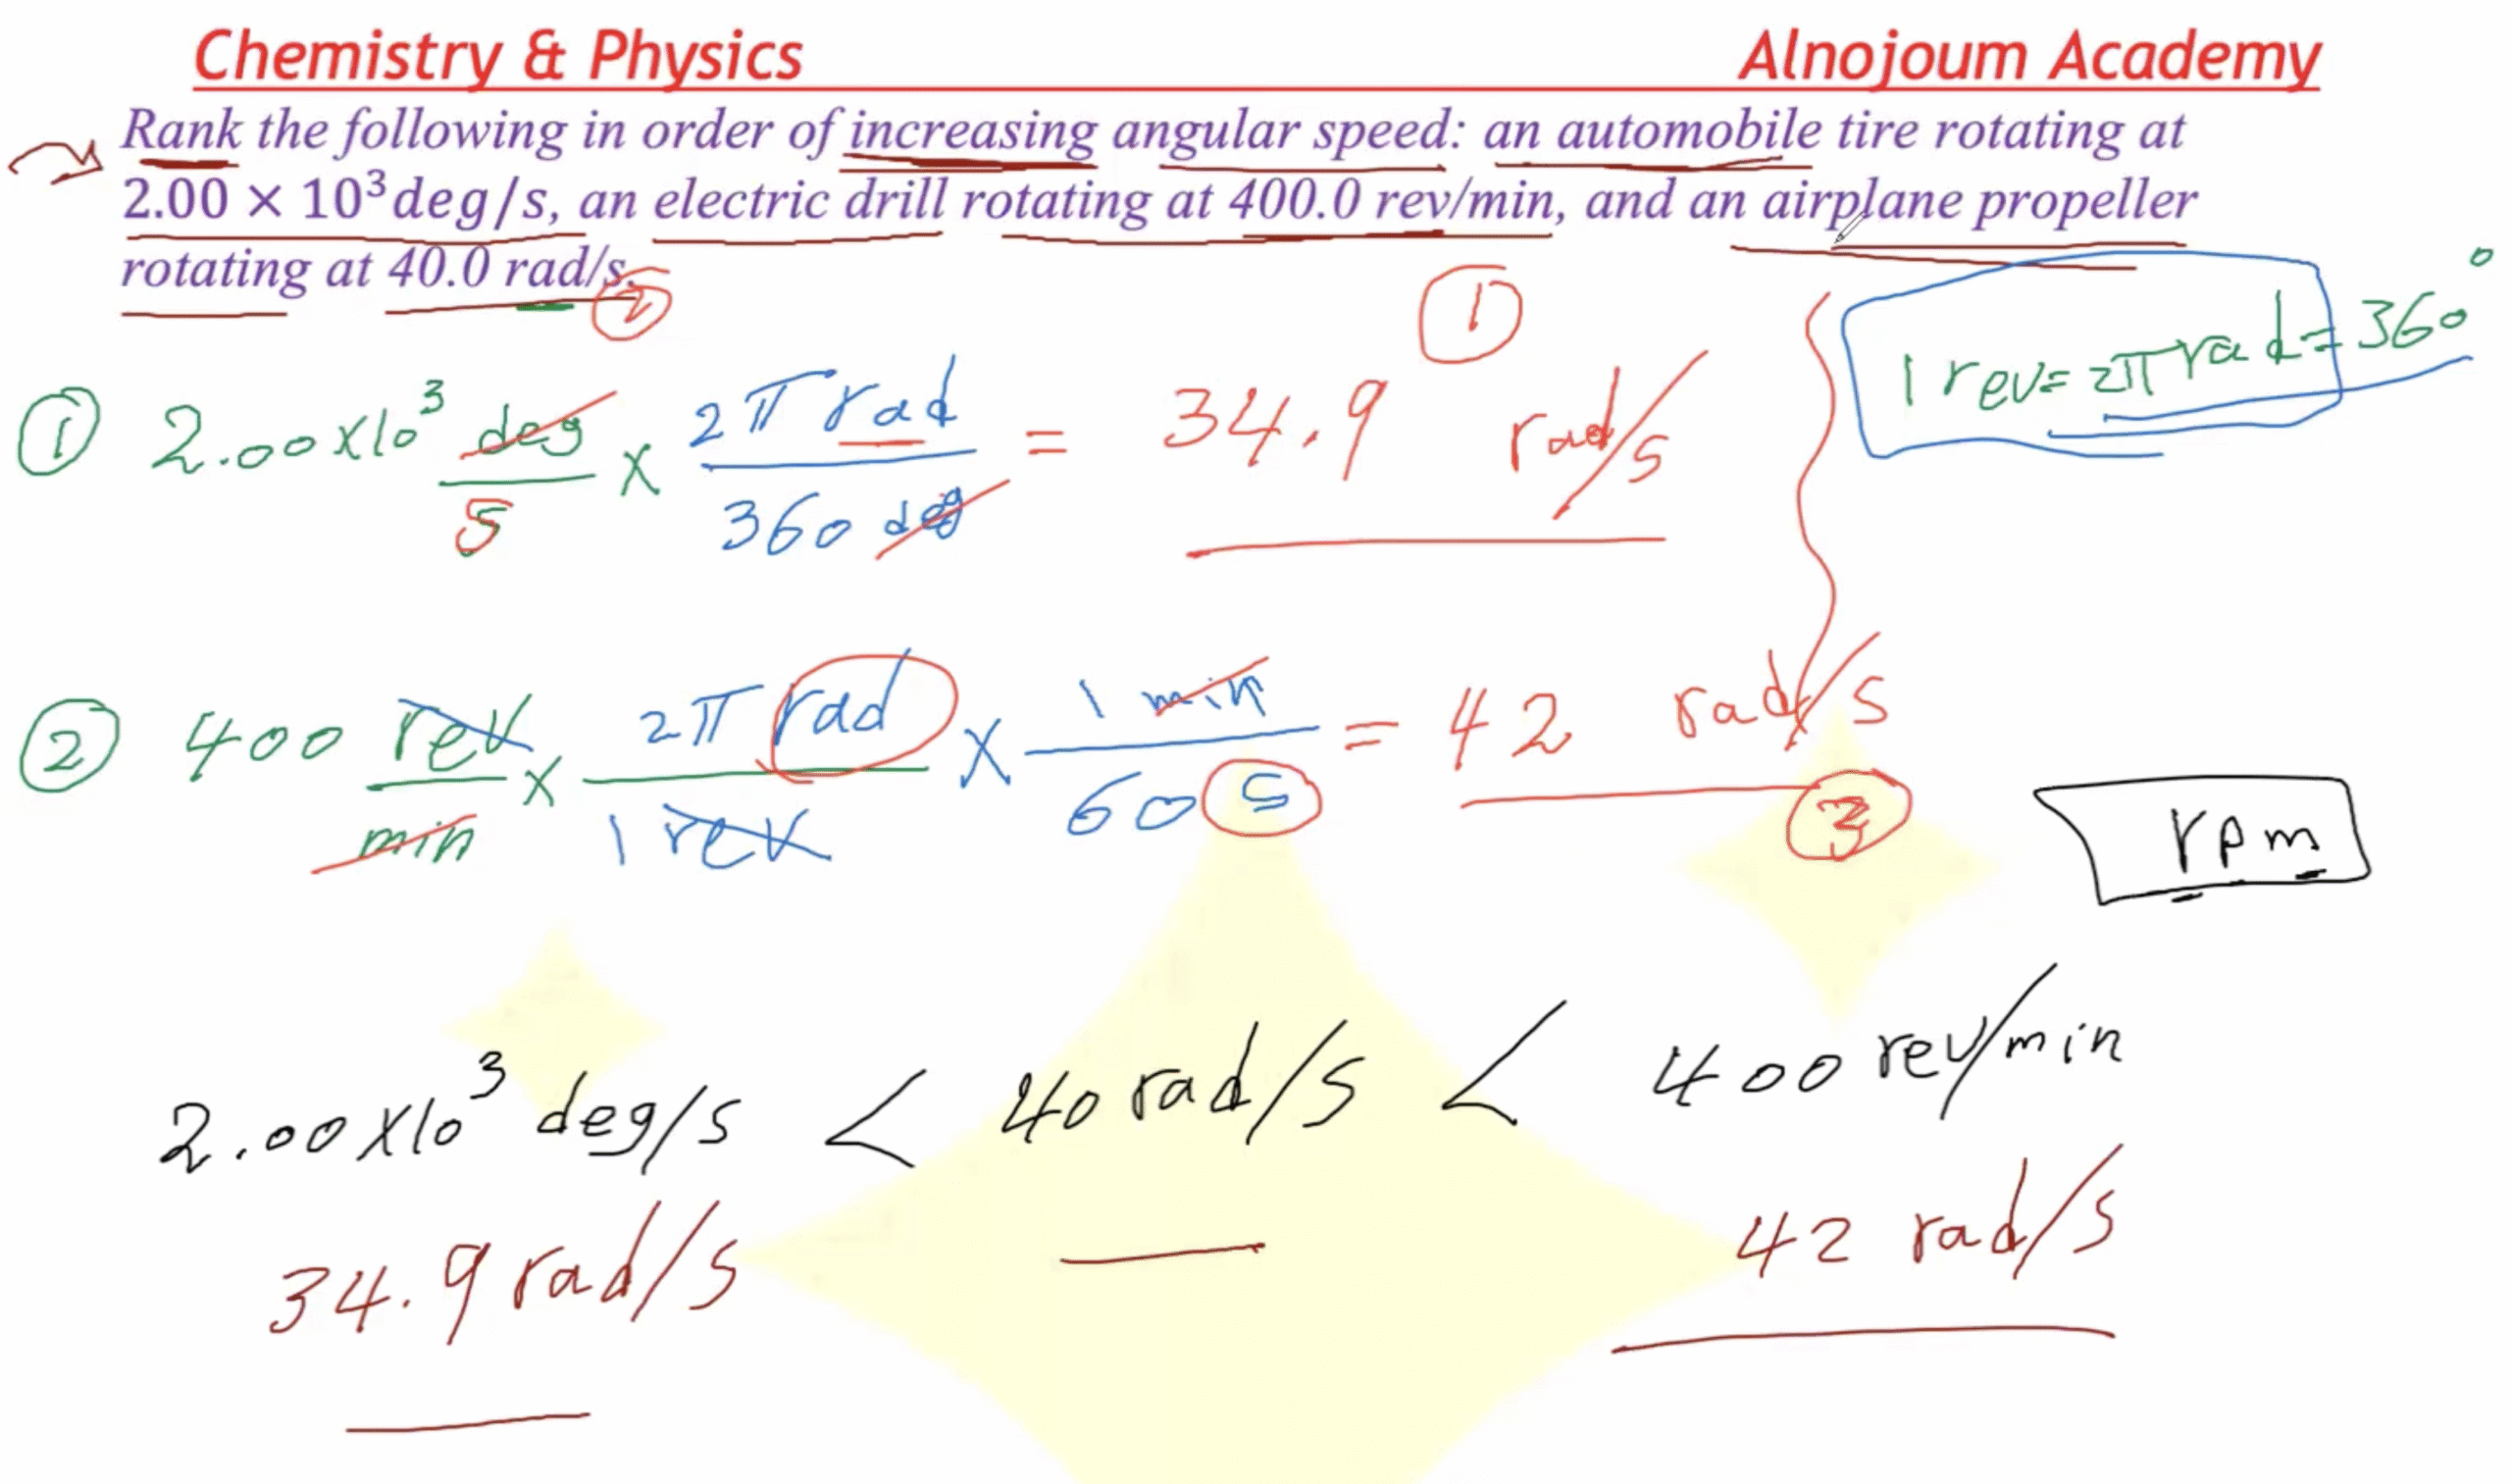 Chemistry & Physics Alnojoum Academy
Rank the following in order of increasing angular speed: an automobile tire rotating at
2.00 × 10³deg/s, an electric drill rotating at 400.0 rev/min, and an airplane propeller
rotating at 40.0 rad/s.
② ①
1 rev = 2π rad = 360°
① 2.00 x 10³ deg/s x 2π rad/360 deg = 34.9 rad/s
② 400 rev/min x 2π rad/1 rev x 1 min/60 s = 42 rad/s
③
rpm
2.00 x 10³ deg/s < 40 rad/s < 400 rev/min
34.9 rad/s 42 rad/s